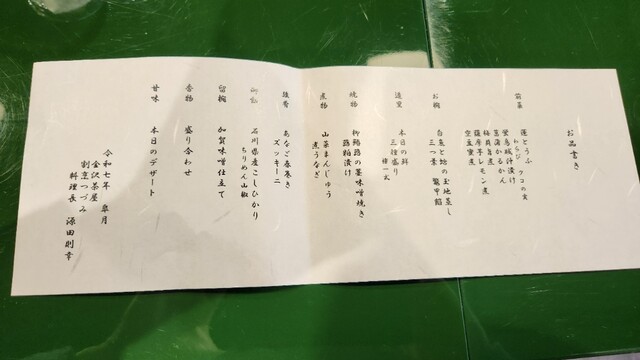 お品書き
前菜
蓮とうふ
わらび クコの実
蛍烏賊沖漬け
菖蒲かるかん
梅貝旨煮
薩摩芋レモン煮
空豆蜜煮
お椀
白魚と蛤の玉地蒸し
三つ葉 鼈甲餡
造里
本日の鮮
三種盛り
妻一式
焼物
柳鰆の蕗味噌焼き
蕗粕漬け
煮物
山菜まんじゅう
煮うなぎ
強肴
あなご春巻き
ズッキーニ
御飯
石川県産こしひかり
ちりめん山椒
留椀
加賀味噌仕立て
香物
盛り合わせ
甘味
本日のデザート
令和七年 皐月
金沢茶屋
割烹つづみ
料理長 源田則幸